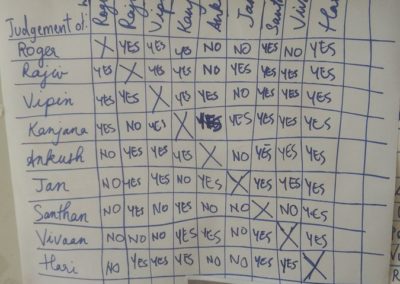 Judgement of: Rog Raj Vip Kanj Ank Jan Sant Viv Hari
Roger X YES YES YES NO NO YES NO YES
Rajiv YES X YES YES YES NO YES YES YES
Vipin YES YES X YES YES NO YES YES YES
Kanjana YES NO YES X YES YES YES YES YES
Ankush NO YES YES YES X NO YES YES YES
Jan NO YES YES NO YES X YES YES YES
Santhan NO YES NO YES NO NO X NO YES
Vivaan NO NO NO YES YES NO YES X YES
Hari NO YES YES YES NO NO YES YES X